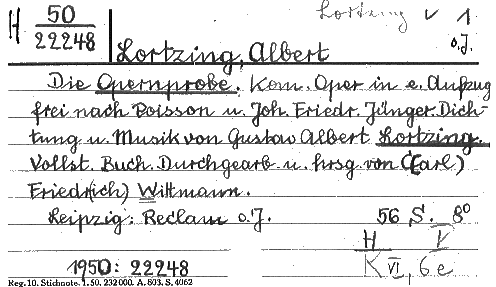 H 50 Lortzing v 1
22248 o.J.
Lortzing, Albert
Die Opernprobe. Kom. Oper in e. Aufzug
frei nach Poisson u. Joh. Friedr. Jünger. Dich-
tung u. Musik von Gustav Albert Lortzing.
Vollst. Buch. Durchgearb u. hrsg von C(arl)
Friedr(ich) Wittmann.
Leipzig: Reclam o.J. 56 S. 8°
H V
1950: 22248 K VI, 6e
Reg. 10. Stichnote. 1. 50. 232000. A. 803. S. 4062